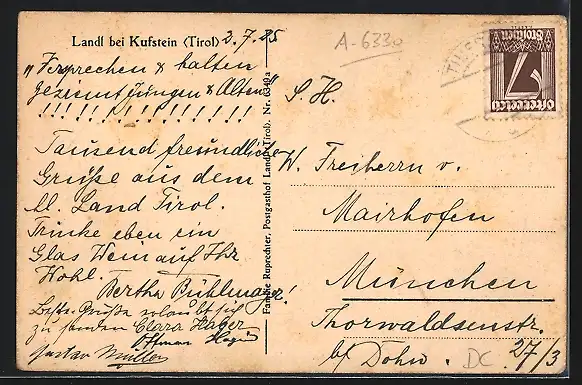 Landl bei Kufstein (Tirol) 2.7.25
A-6330
„Versprechen & halten
geziemt Jungen & Alten"
!!!!!!!!!!!!!!
Tausend freundliche
Grüße aus dem
kl. Land Tirol.
Trinke eben ein
Glas Wein auf Ihr
Wohl.
Bertha Bühlmayer!
Beste Grüße erlaubt sich
zu senden Clara Hager
Gustav Müller
Familie Ruprechter, Postgasthof Landl (Tirol). Nr. 6349a
7
Groschen
Österreich
S. H.
W. Freiherrn v.
Mairhofen
München
Thorwaldsenstr.
27/3
bf Dohn.
DC